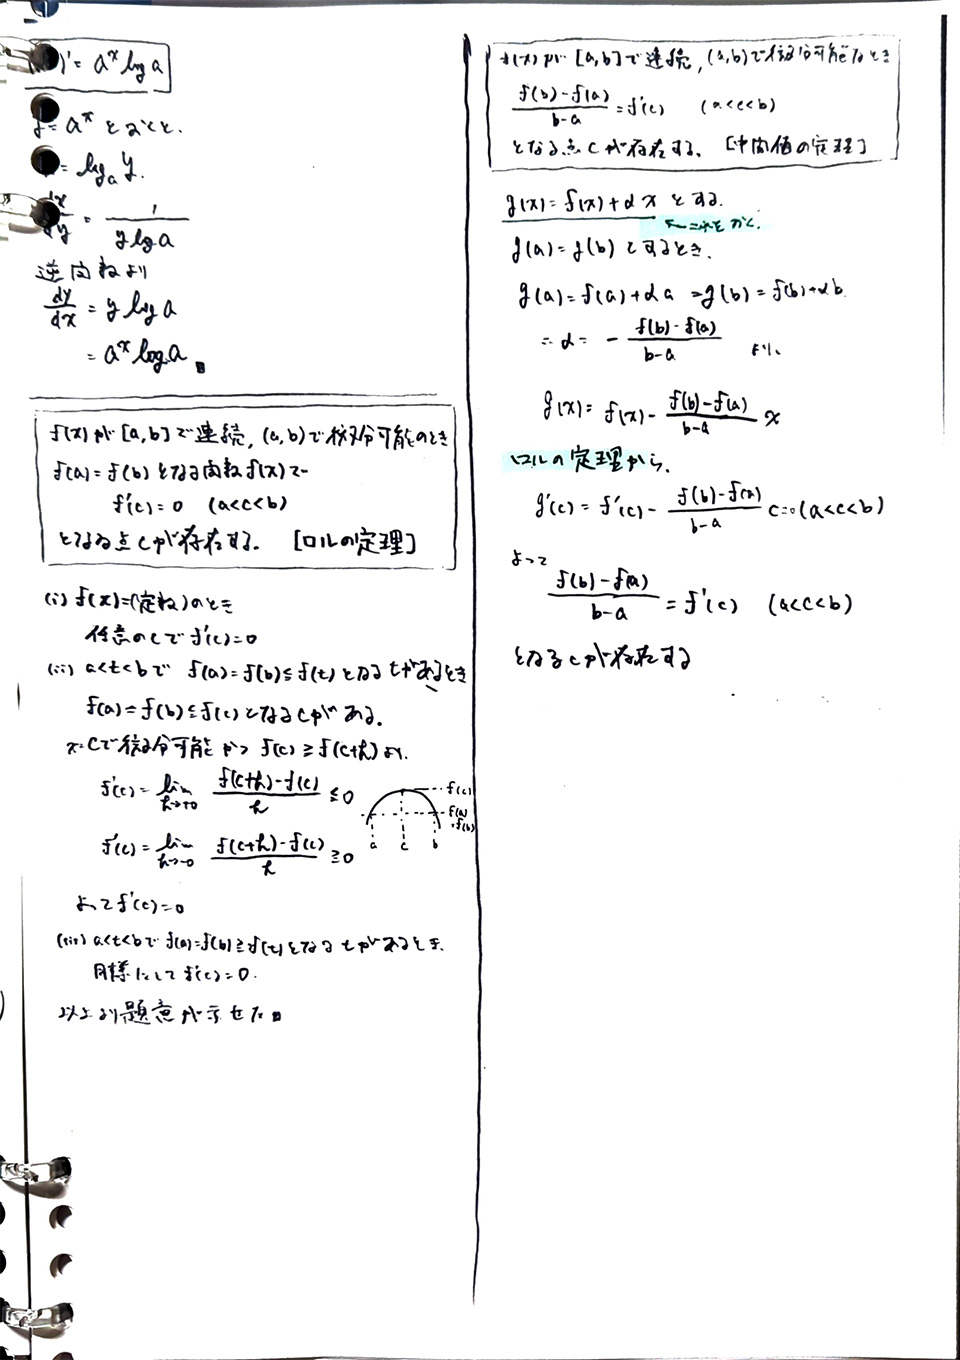 )' = aˣ log a
= aˣ とおくと、
= logₐ y.
dx/dy = 1/(y log a)
逆関数より
dy/dx = y log a
= aˣ log a
f(x)が[a,b]で連続, (a,b)で微分可能のとき
f(a)=f(b)となる関数f(x)で
f'(c)=0 (a<c<b)
となる点cが存在する. [ロルの定理]
(i) f(x)=(定数)のとき
任意のcでf'(c)=0
(ii) a<t<bで f(a)=f(b)≦f(t)となるtがあるとき
f(a)=f(b)≦f(c)となるcがある.
x=cで微分可能かつ f(c)≧f(c+h)より.
f'(c)= lim h→+0 (f(c+h)-f(c))/h ≦0
f'(c)= lim h→-0 (f(c+h)-f(c))/h ≧0
f(c)
f(a)
=f(b)
a c b
よってf'(c)=0
(iii) a<t<bでf(a)=f(b)≧f(t)となるtがあるとき.
同様にしてf'(c)=0.
以上より題意が示せた
f(x)が[a,b]で連続, (a,b)で微分可能なとき
(f(b)-f(a))/(b-a) = f'(c) (a<c<b)
となる点cが存在する. [中間値の定理]
g(x)=f(x)+αxとする.
←これをかく.
g(a)=g(b)とするとき.
g(a)=f(a)+αa=g(b)=f(b)+αb.
∴α= -(f(b)-f(a))/(b-a) より、
g(x)= f(x)- (f(b)-f(a))/(b-a) x
ロルの定理から,
g'(c)= f'(c)- (f(b)-f(a))/(b-a) c=0 (a<c<b)
よって
(f(b)-f(a))/(b-a) = f'(c) (a<c<b)
となるcが存在する